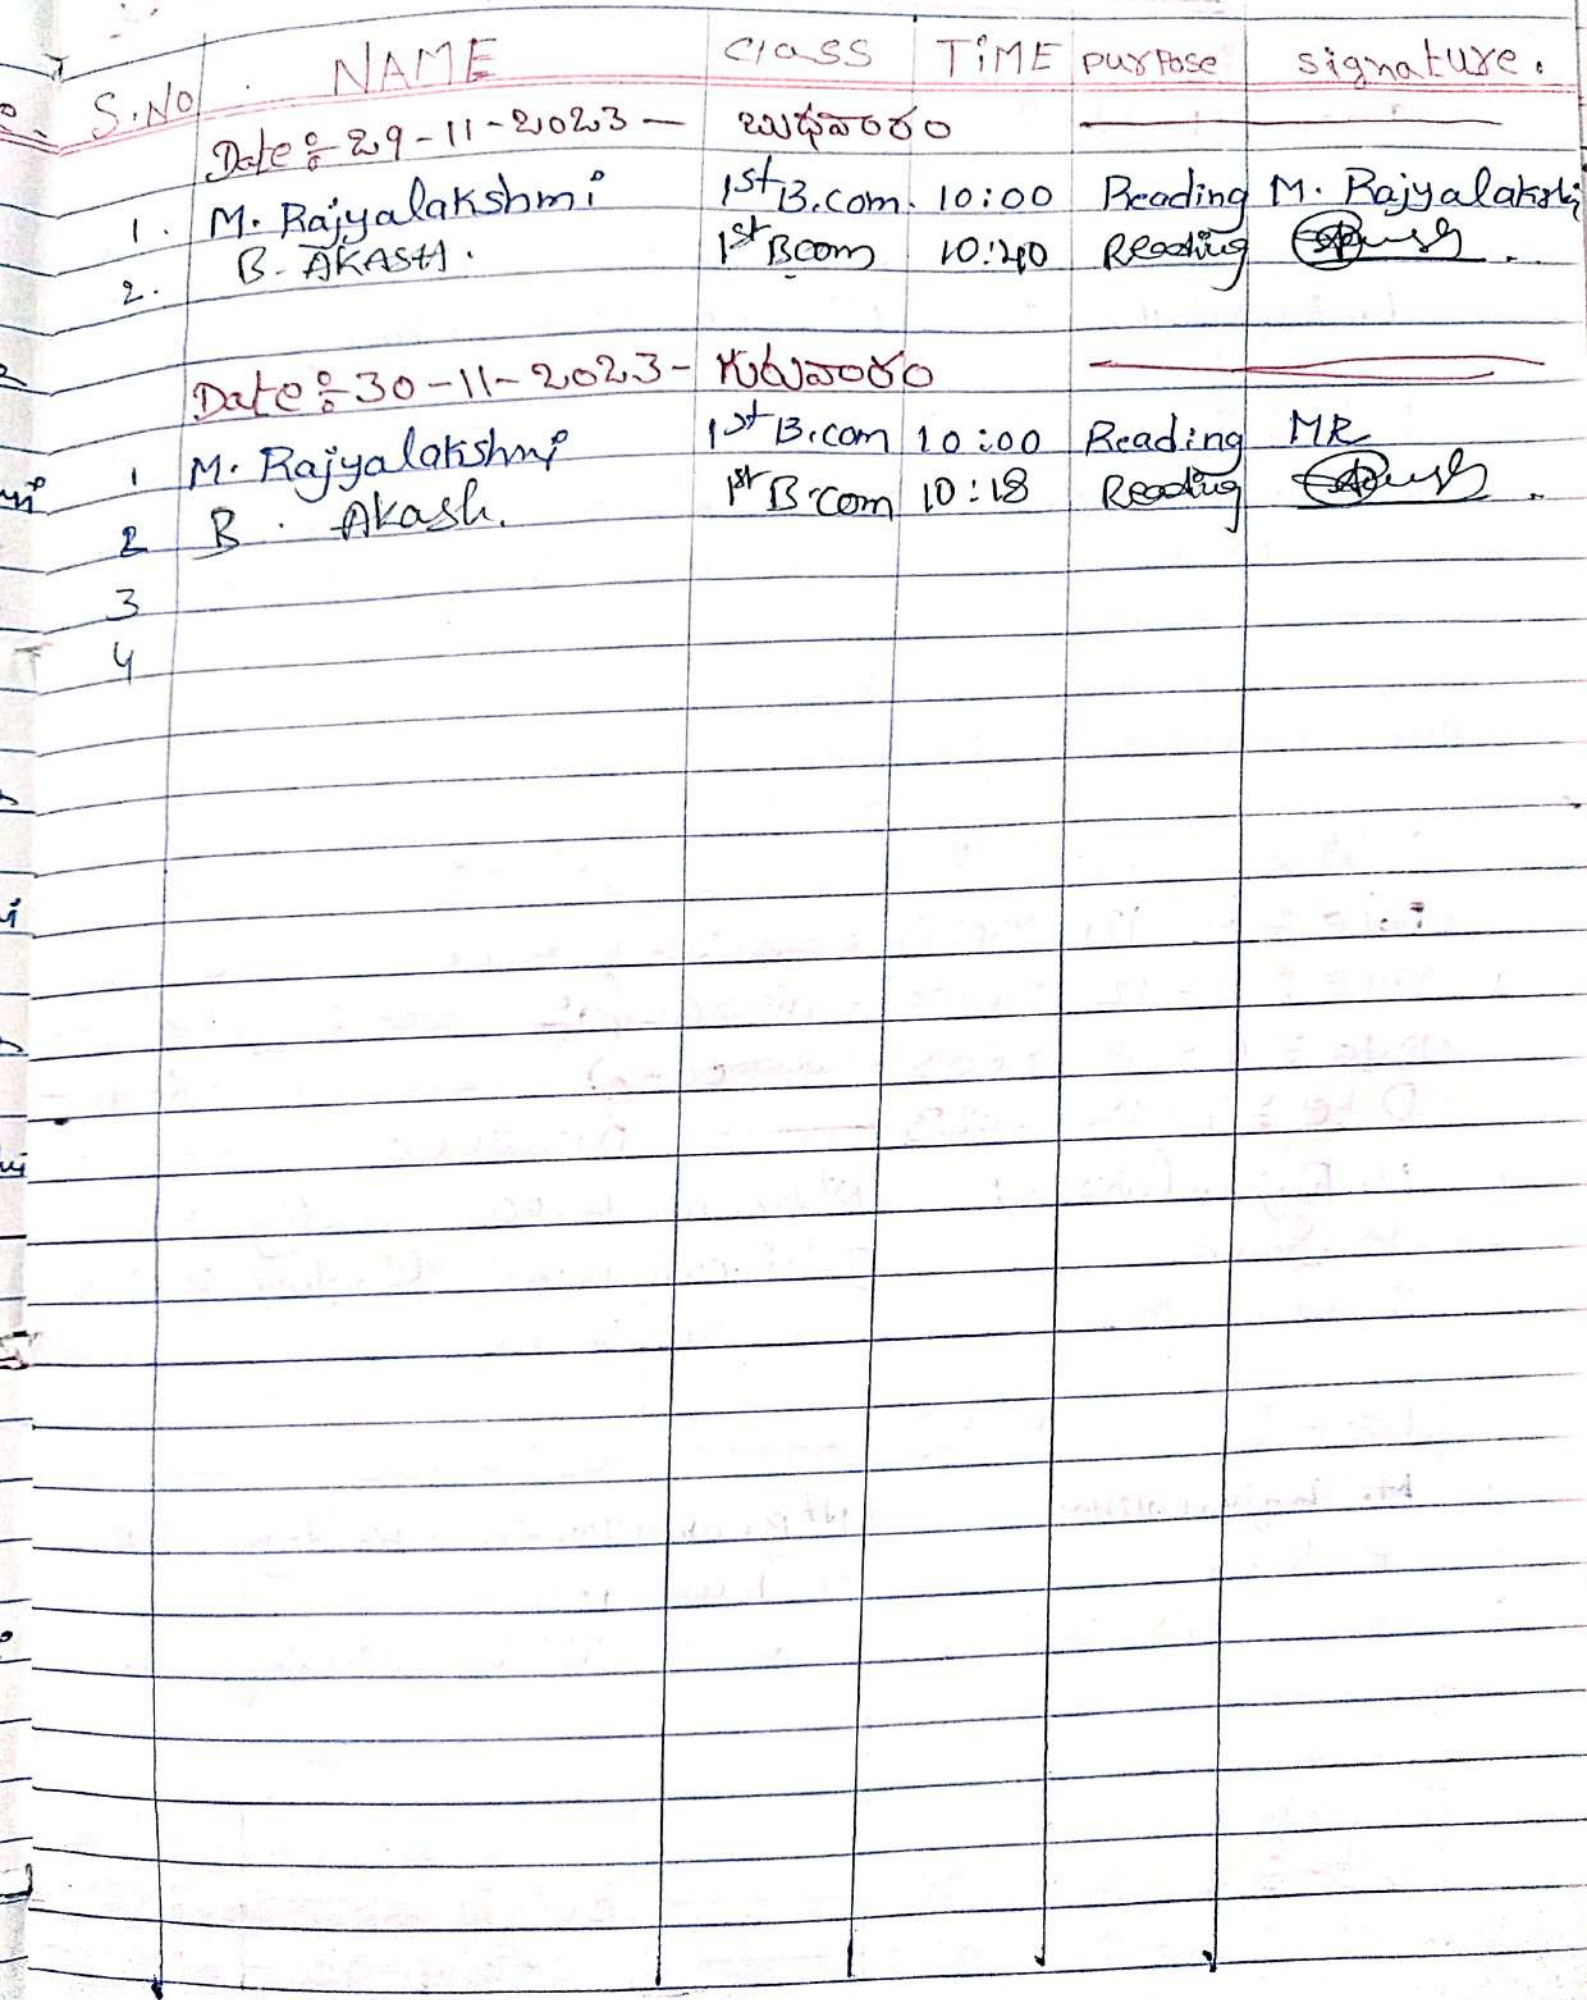 S.No NAME Class TiME purpose signature.
Date:- 29-11-2023 - బుధవారం
1. M. Rajyalakshmi 1st B.com. 10:00 Reading M. Rajyalakshmi
2. B. AKASH. 1st Bcom 10:40 Reading
Date:- 30-11-2023 - గురువారం
1 M. Rajyalakshmi 1st B.com 10:00 Reading MR
2 B. Akash. 1st B.com 10:18 Reading
3
4